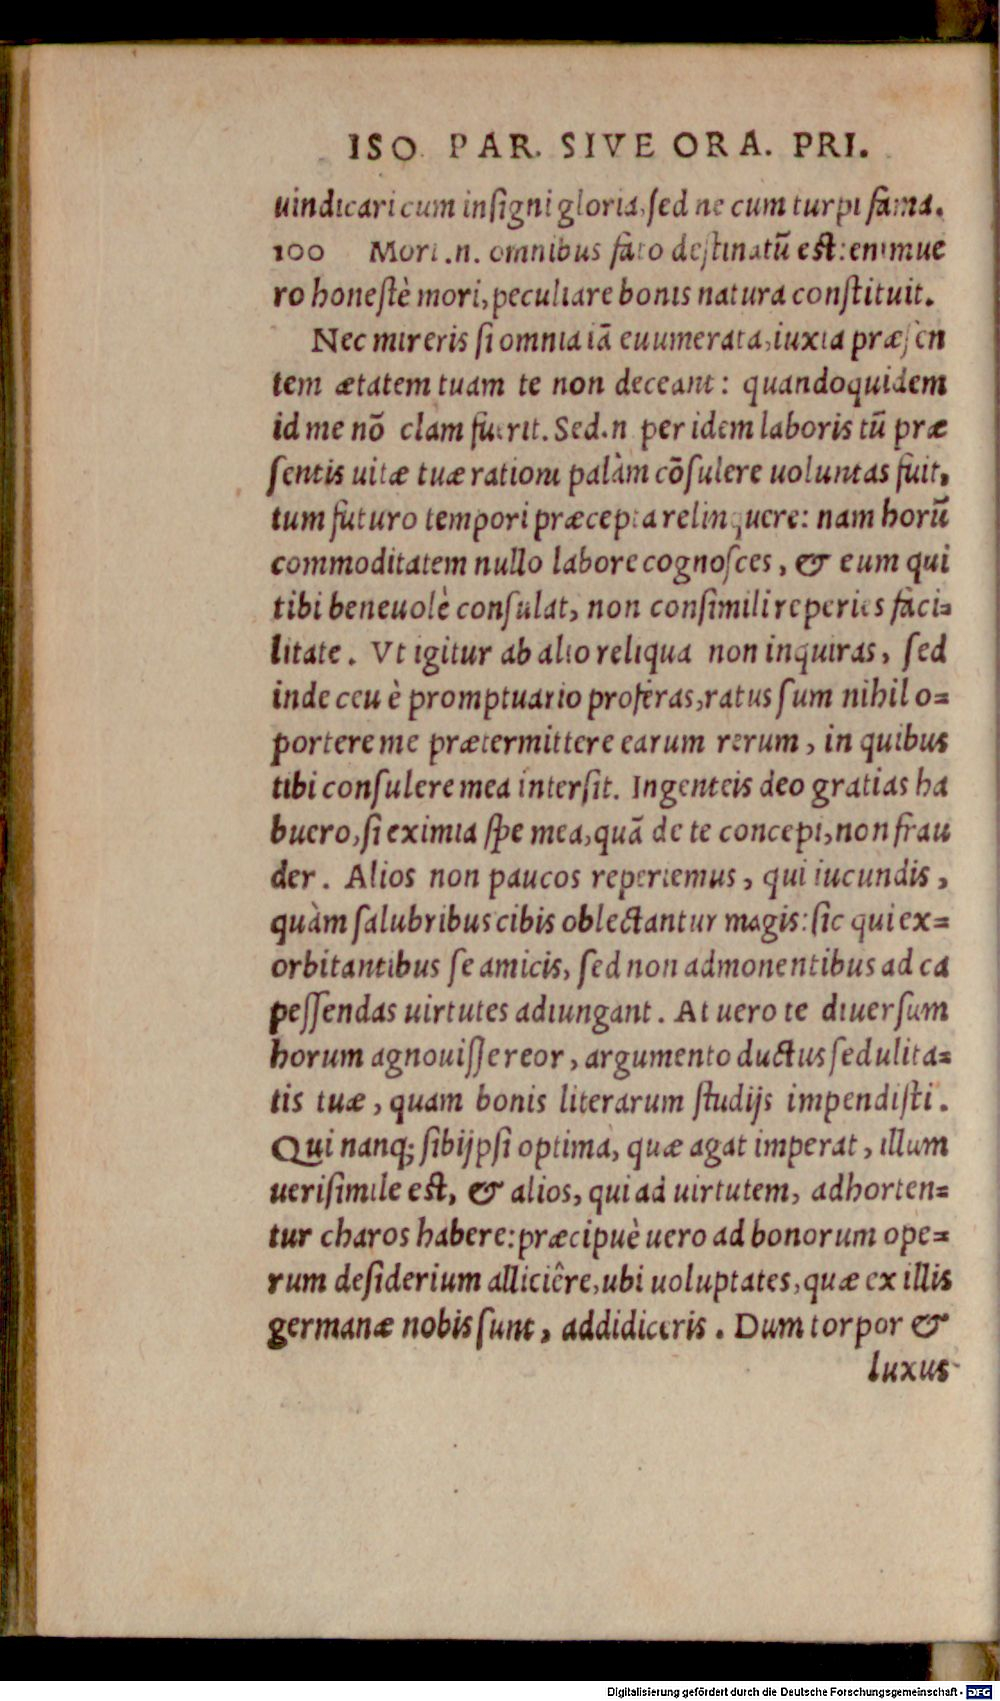 ISO. PAR. SIVE ORA. PRI.
uindicari cum insigni gloria, sed ne cum turpi fama.
100 Mori .n. omnibus fato destinatū est: enimue
ro honestè mori, peculiare bonis natura constituit.
Nec mireris si omnia iā euumerata, iuxta præsen
tem ætatem tuam te non deceant: quandoquidem
id me nō clam fuerit. Sed .n. per idem laboris tū præ
sentis uitæ tuæ rationi palàm cōsulere uoluntas fuit,
tum futuro tempori præcepta relinquere: nam horū
commoditatem nullo labore cognosces, & eum qui
tibi beneuolè consulat, non consimili reperies faci=
litate. Vt igitur ab alio reliqua non inquiras, sed
inde ceu è promptuario proferas, ratus sum nihil o=
portere me prætermittere earum rerum, in quibus
tibi consulere mea intersit. Ingenteis deo gratias ha
buero, si eximia spe mea, quā de te concepi, non frau
der. Alios non paucos reperiemus, qui iucundis,
quàm salubribus cibis oblectantur magis: sic qui ex=
orbitantibus se amicis, sed non admonentibus ad ca
pessendas uirtutes adiungant. At uero te diuersum
horum agnouisse reor, argumento ductus sedulita=
tis tuæ, quam bonis literarum studijs impendisti.
Qui nanq; sibijpsi optima, quæ agat imperat, illum
uerisimile est, & alios, qui ad uirtutem, adhorten=
tur charos habere: præcipuè uero ad bonorum ope=
rum desiderium alliciêre, ubi uoluptates, quæ ex illis
germanæ nobis sunt, addidiceris. Dum torpor &
luxus
Digitalisierung gefördert durch die Deutsche Forschungsgemeinschaft - DFG